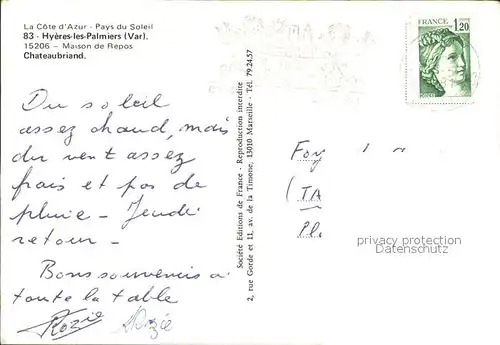 La Côte d'Azur - Pays du Soleil
83 - Hyères-les-Palmiers (Var).
15206 - Maison de Repos
Chateaubriand.
FRANCE
1,20
Du soleil
assez chaud, mais
du vent assez
frais et pas de
pluie - Jeudi
retour -
Bons souvenirs à
toute la table
Rozie
Rozie
Société Editions de France - Reproduction interdite
2, rue Gorde et 11, av. de la Timone, 13010 Marseille - Tél. 79.24.57
Foy
(TA
Pl.
privacy protection
Datenschutz